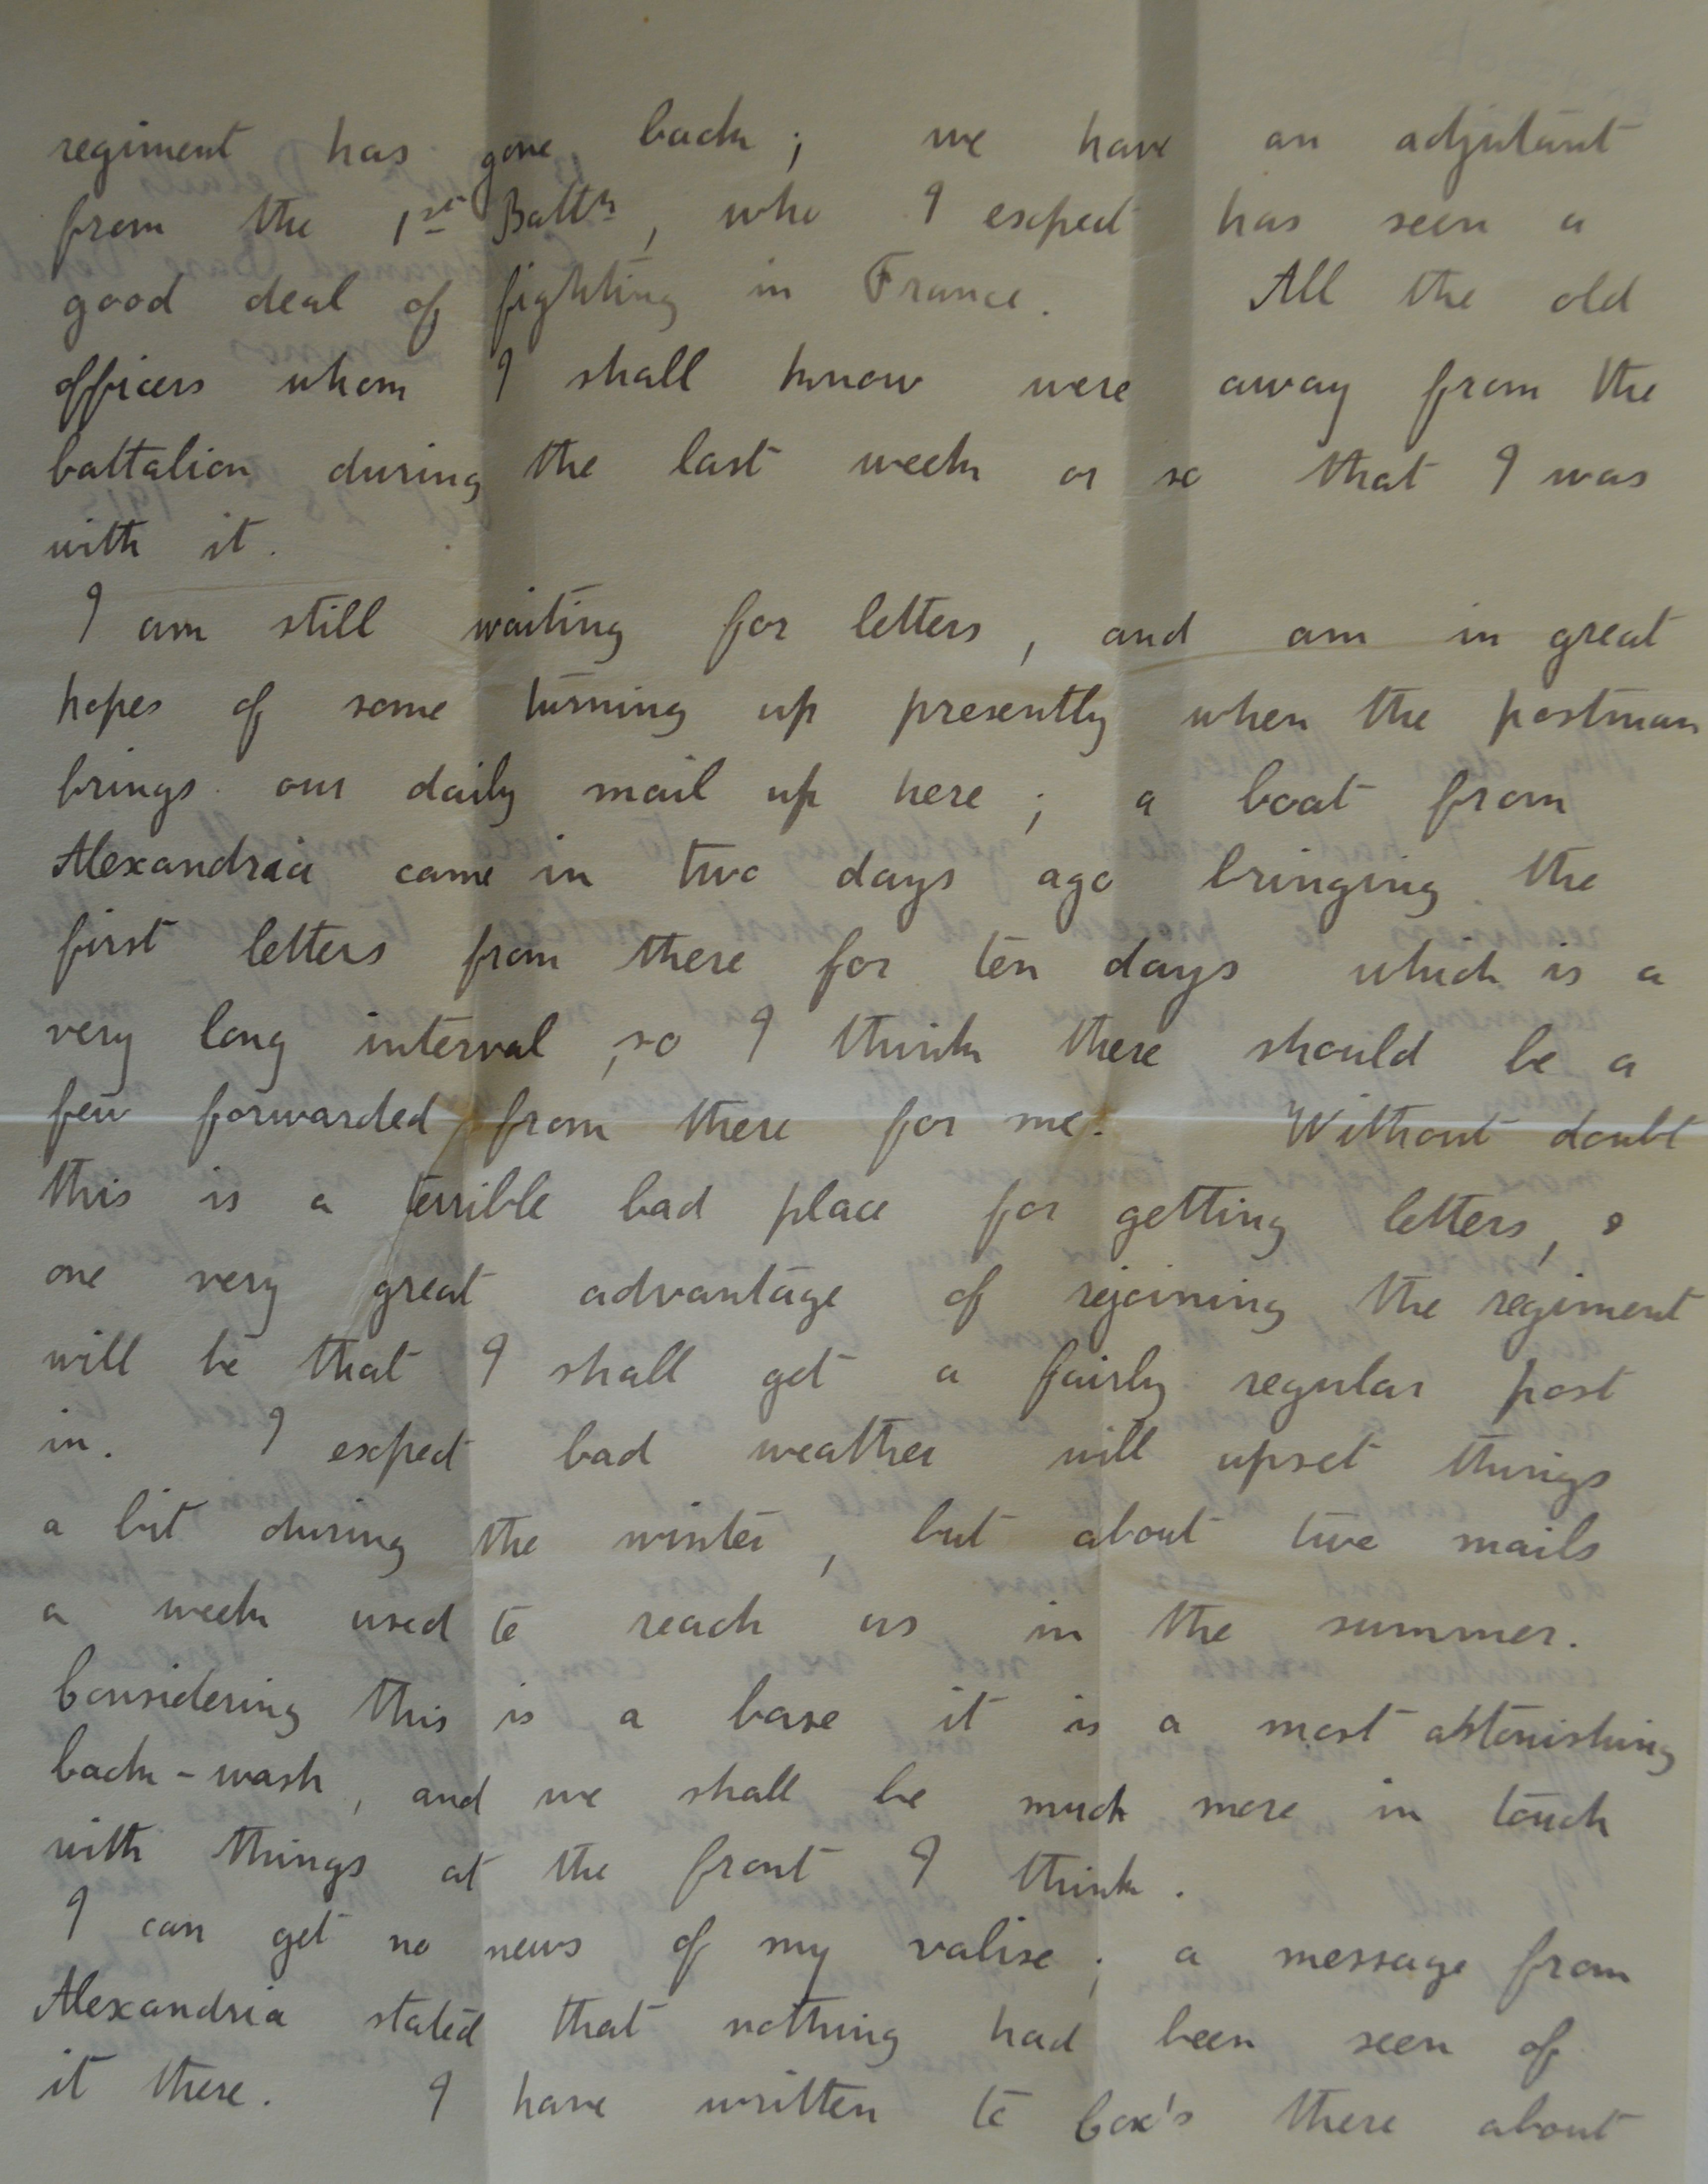 regiment has gone back ; we have an adjutant
from the 1st Battn, who I expect has seen a
good deal of fighting in France. All the old
officers whom I shall know were away from the
battalion during the last week or so that I was
with it.
I am still waiting for letters, and am in great
hopes of some turning up presently when the postman
brings our daily mail up here ; a boat from
Alexandria came in two days ago bringing the
first letters from there for ten days which is a
very long interval, so I think there should be a
few forwarded from there for me. Without doubt
this is a terrible bad place for getting letters, &
one very great advantage of rejoining the regiment
will be that I shall get a fairly regular post
in. I expect bad weather will upset things
a bit during the winter, but about two mails
a week used to reach us in the summer.
Considering this is a base it is a most astonishing
back-wash, and we shall be much more in touch
with things at the front I think.
I can get no news of my valise ; a message from
Alexandria stated that nothing had been seen of
it there. I have written to Cox's there about